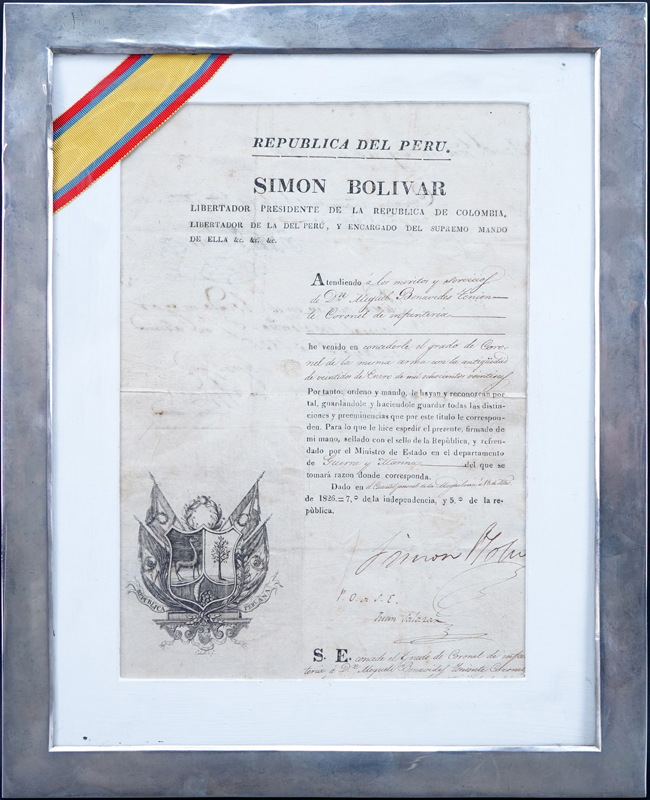 REPUBLICA DEL PERU.
SIMON BOLIVAR
LIBERTADOR PRESIDENTE DE LA REPUBLICA DE COLOMBIA,
LIBERTADOR DE LA DEL PERÚ, Y ENCARGADO DEL SUPREMO MANDO
DE ELLA &c. &c. &c.
Atendiendo á los meritos y servicios
de Dn Miguel Benavides Tenien
te Coronel de infanteria
he venido en concederle el grado de Coro-
nel de la misma arma con la antigüedad
de veintidos de Enero de mil ochocientos
Por tanto; ordeno y mando, le hayan y reconozcan por
tal, guardandole y haciendole guardar todas las distin-
ciones y preeminencias que por este titulo le correspon-
den. Para lo que le hice espedir el presente, firmado de
mi mano, sellado con el sello de la República, y refren-
dado por el Ministro de Estado en el departamento
de Guerra y Marina del que se
tomará razon donde corresponda.
Dado en
de 1826=7.º de la independencia, y 5.º de la re-
pública.
Simon Boliv
P. O. de S. E.
Juan Salazar
REPUBLICA PERUANA
S. E. concede el Grado de Coronel de infan
teria á Dn Miguel Benavides Teniente Coronel